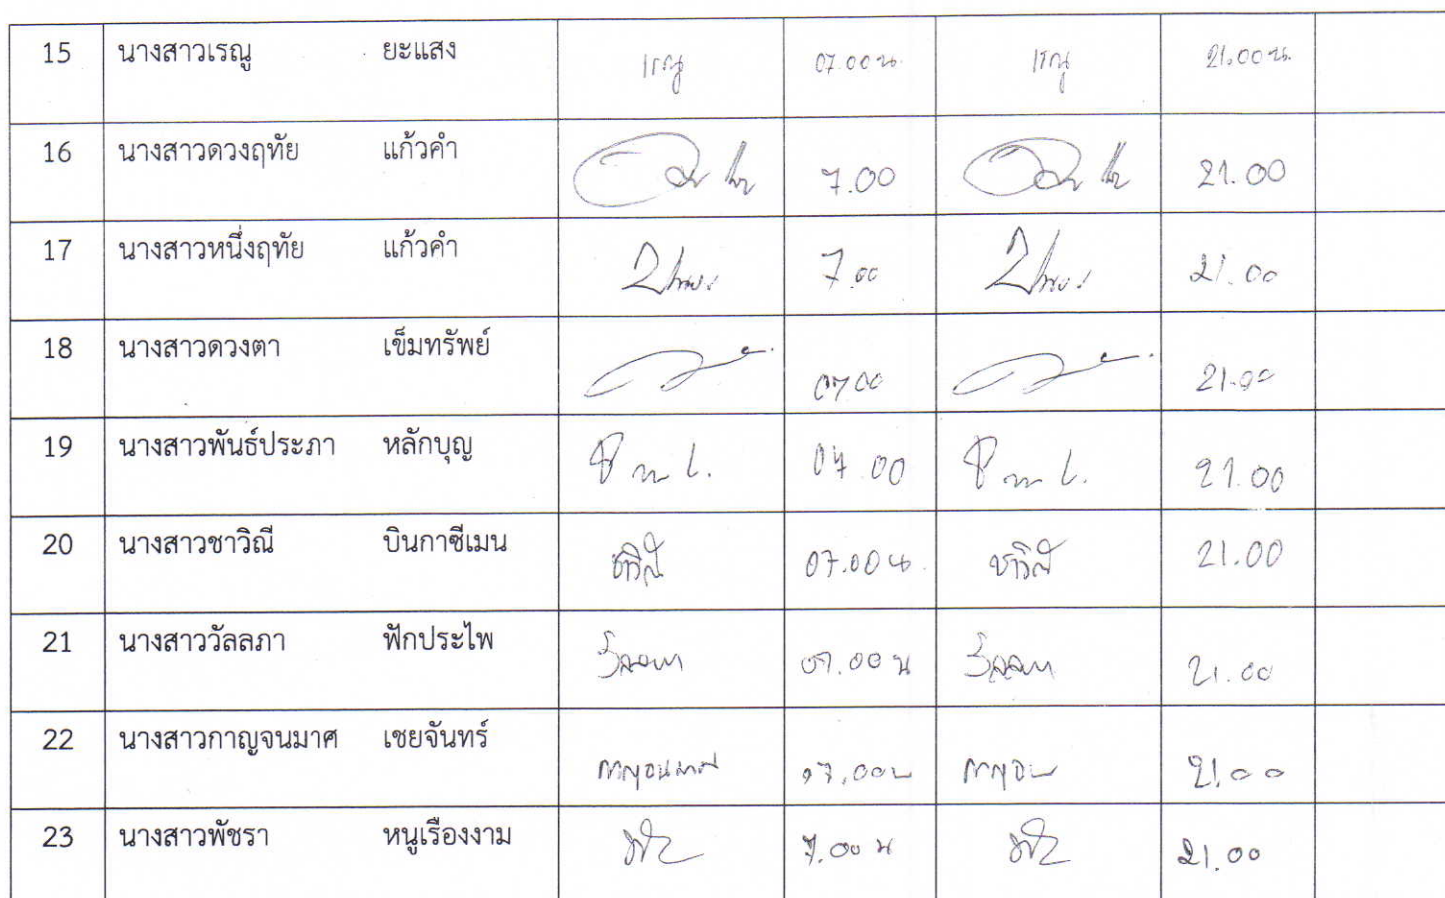 15 นางสาวเรณู ยะแสง เรณู 07.00 น. เรณู 21.00 น.
16 นางสาวดวงฤทัย แก้วคำ 7.00 21.00
17 นางสาวหนึ่งฤทัย แก้วคำ 7.00 21.00
18 นางสาวดวงตา เข็มทรัพย์ 07.00 21.00
19 นางสาวพันธ์ประภา หลักบุญ 07.00 21.00
20 นางสาวชาวิณี บินกาซีเมน ชาวิณี 07.00 น. ชาวิณี 21.00
21 นางสาววัลลภา ฟักประไพ วัลลภา 07.00 น วัลลภา 21.00
22 นางสาวกาญจนมาศ เชยจันทร์ กาญจนมาศ 07.00 น 21.00
23 นางสาวพัชรา หนูเรืองงาม 7.00 น 21.00